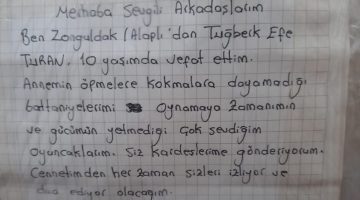 Merhaba Sevgili Arkadaşlarım
Ben Zonguldak / Alaplı'dan Tuğberk Efe
TURAN. 10 yaşımda vefat ettim.
Annemin öpmelere kokmalara dayamadığı
battaniyelerimi oynamaya zamanımın
ve gücümün yetmediği çok sevdiğim
oyuncaklarım. Siz kardeşlerime gönderiyorum.
Cennetimden her zaman sizleri izliyor ve
dua ediyor olacağım.